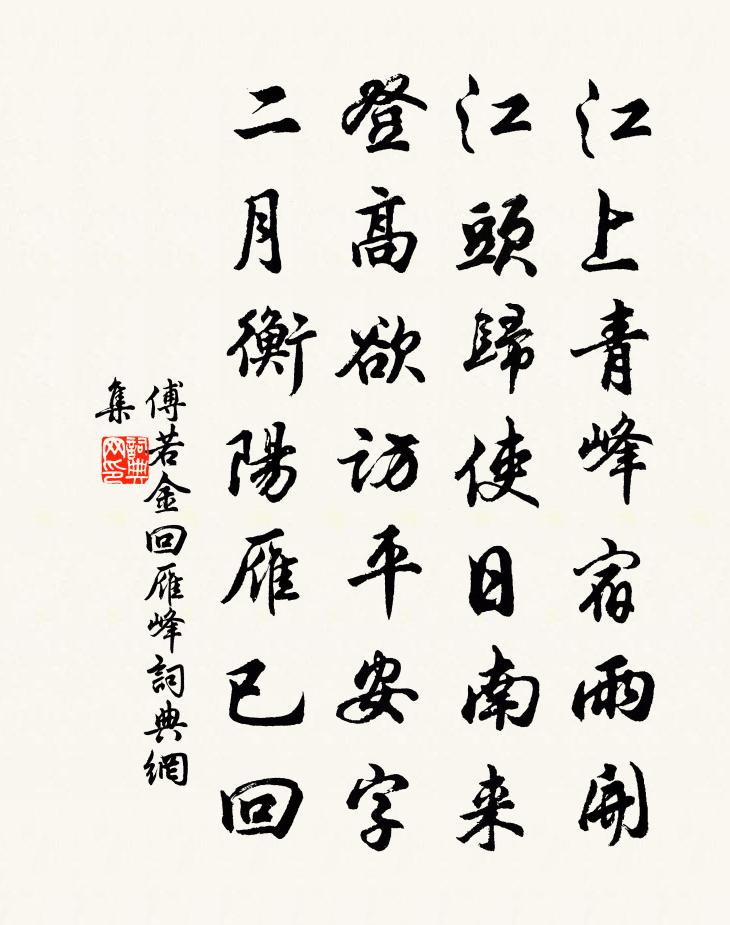 江上青峰宿雨開
江頭歸使日南来
登高欲訪平安字
二月衡陽雁已回
傅若金回雁峰詞典網
集
詞典網印